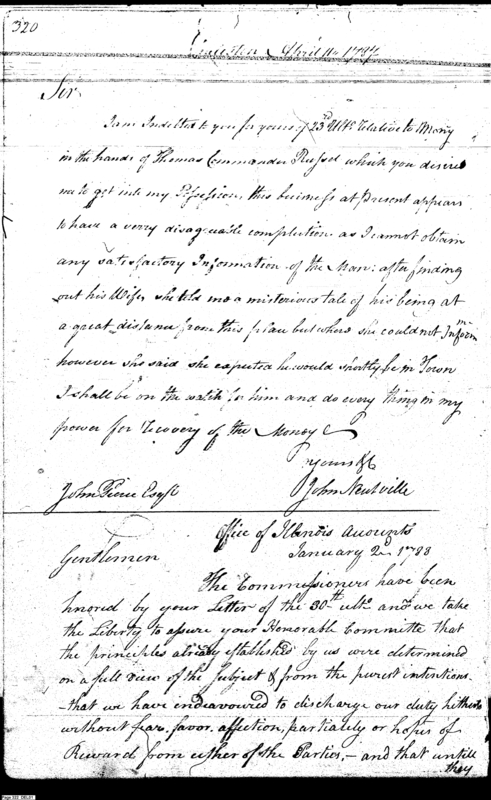 320
April 14 1787
Sir
I am Indebted to you for yours of 23d Ulto. Relative to Mony
in the hands of Thomas Commander Russel which you desired
me to get into my Possession, this buisness at Present appears
to have a verry disagreeable complection as I cannot obtain
any satisfactory Information of the Man: after finding
out his Wife, she told me a misterious tale of his being at
a great distance from this place but where she could not Inform
however she said she expected he would shortly be in Town
I shall be on the watch for him and do every thing in my
power for recovery of the Money
yours &c
John Pierce Esqr
John Neufville
Office of Illinois Accounts
January 2d 1788
Gentlemen
The Commissioners have been
hnored by your Letter of the 30th ulto. and we take
the Liberty to assure your Honorable Committe that
the principles already established by us were determined
on a full view of the Subject & from the purest intentions.
that we have endeavoured to discharge our duty hitherto
without fear, favor, affection, partiality or hopes of
Reward from either of the Parties,- and that untill
they